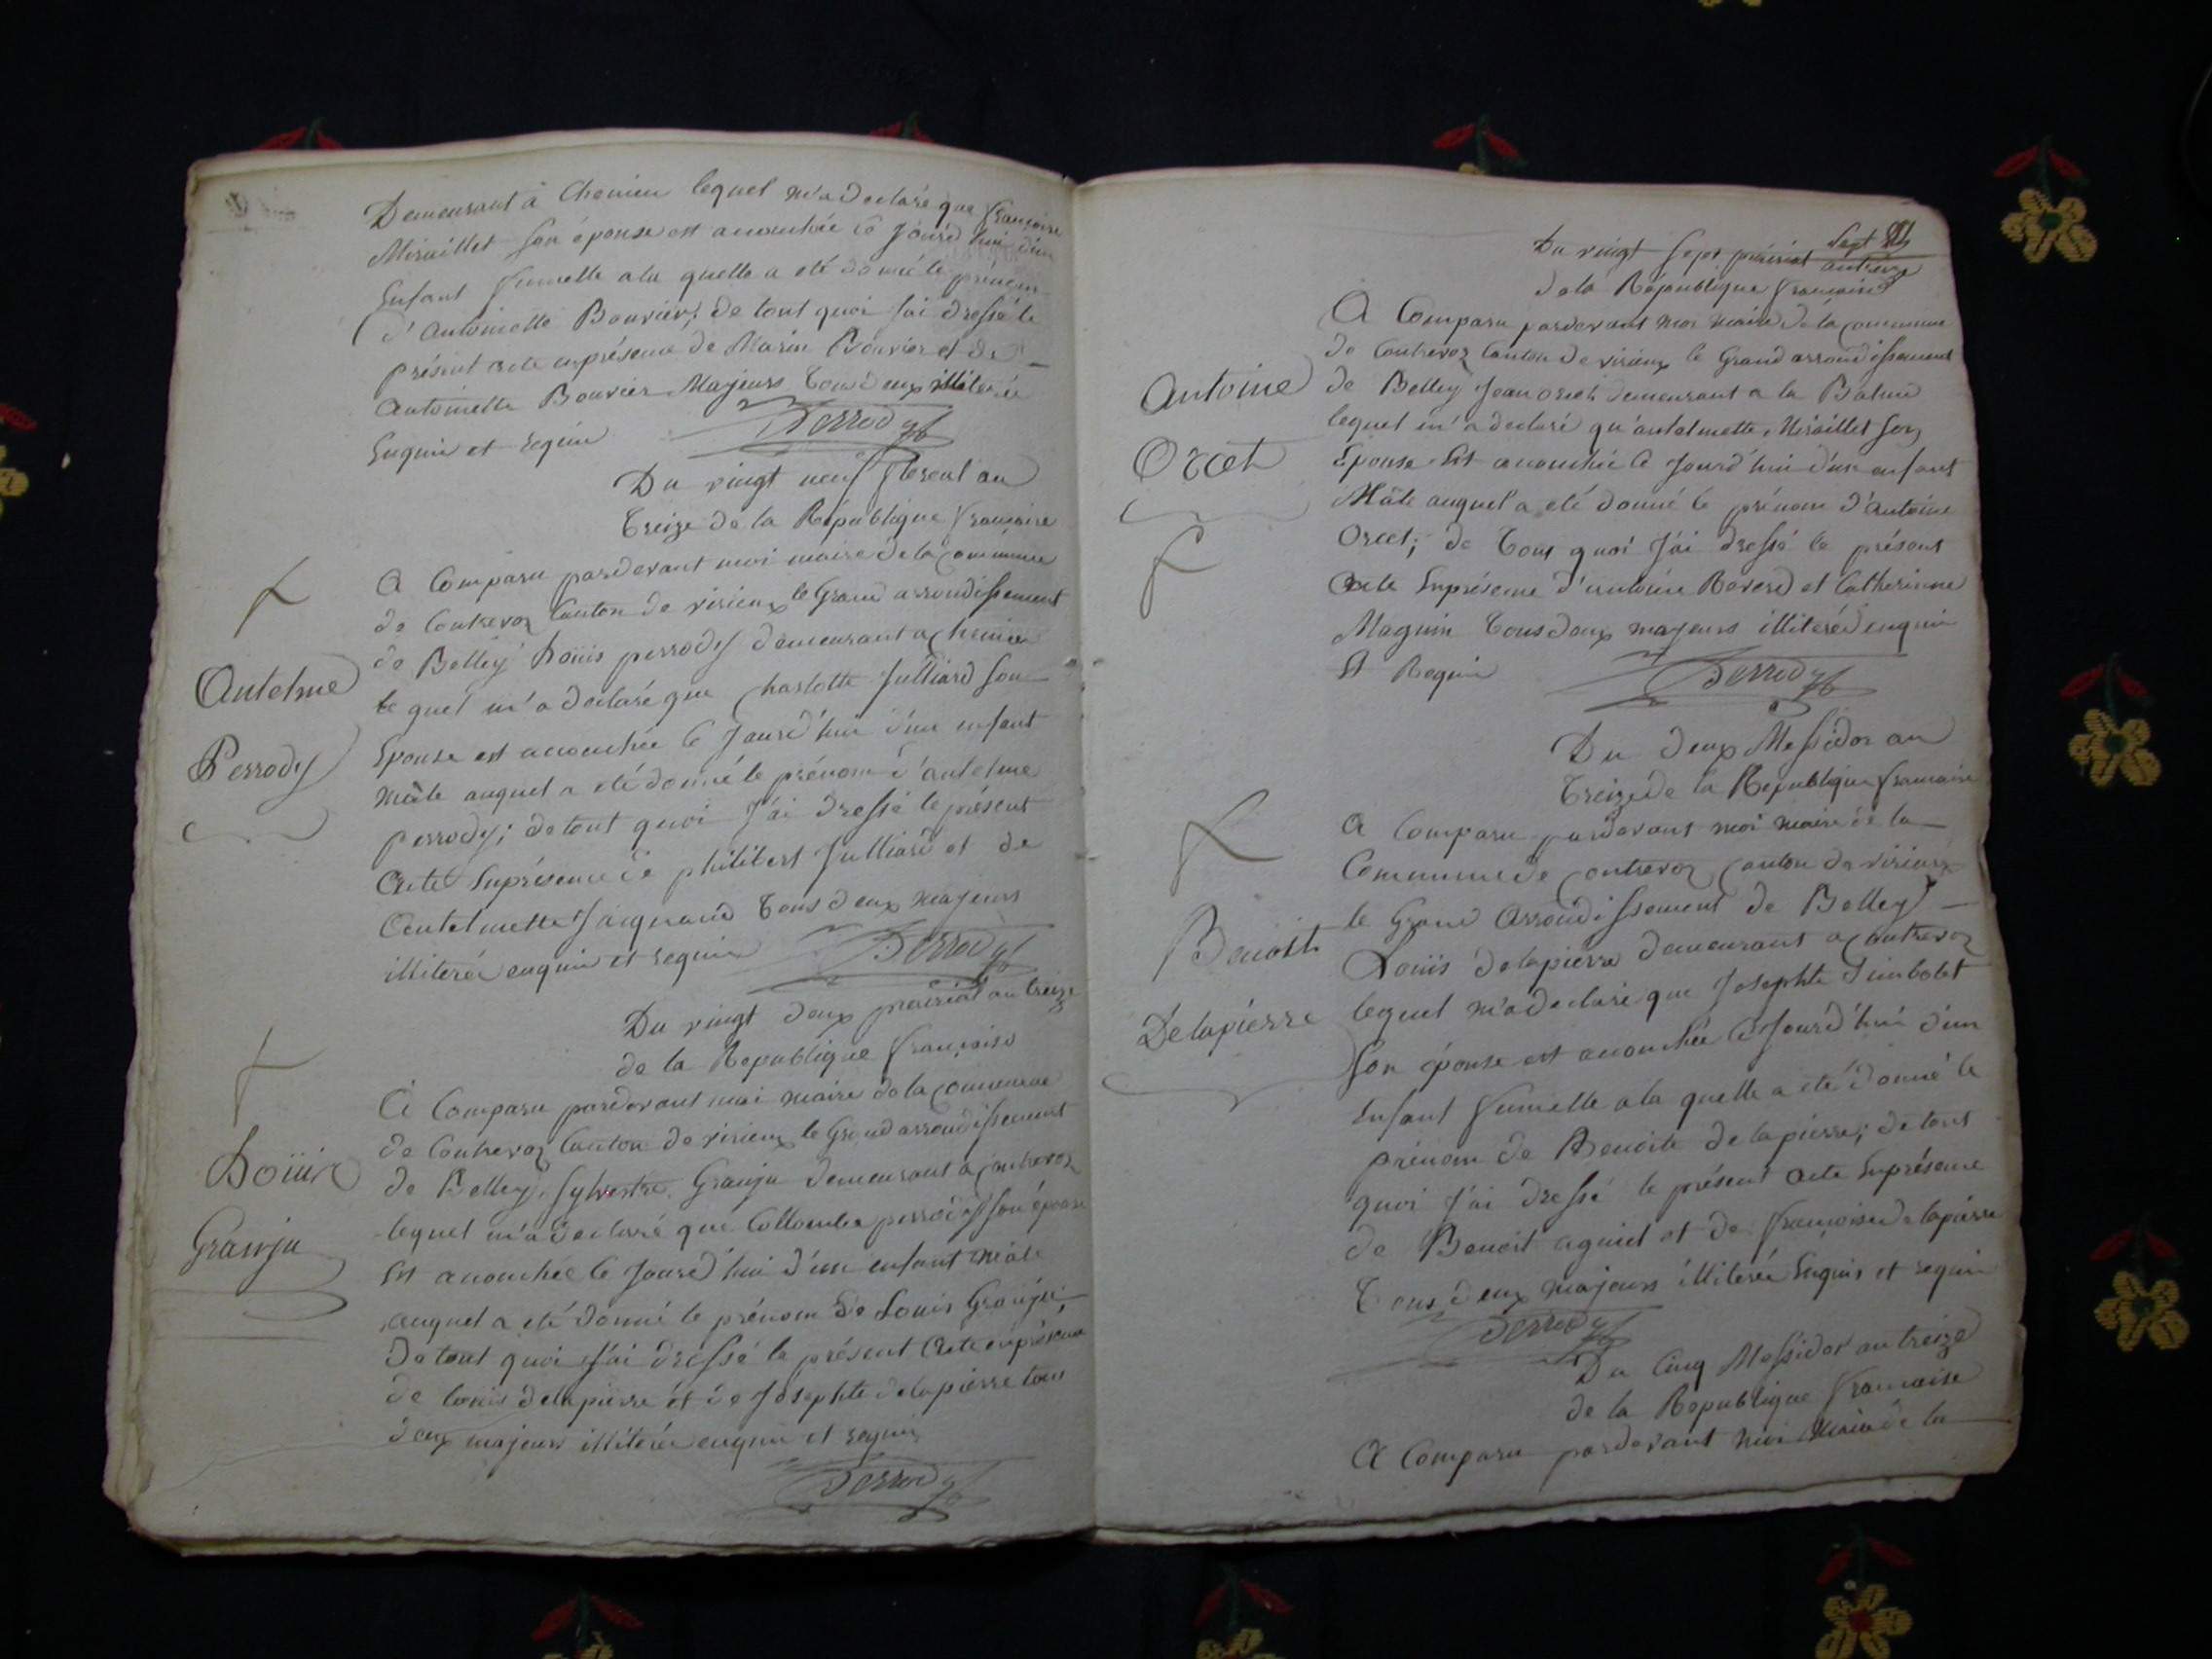 Demeurant à Chemieu lequel m'a déclaré que françoise
Miraillet son épouse est accouchée ce Jourd'hui d'un
Enfant fumelle a la quelle a eté donné le prénom
d'Antoinette Bouvier; de tout quoi J'ai dressé le
présent acte enprésence de Marin Bouvier et de
antoinette Bouvier Majeurs tous deux illiterés
Enquis et requis Perrody
Du vingt neuf floréal an
treize de la République francaise
Antelme
Perrody
A Comparu pardevant moi maire de la Commune
de Contrevoz Canton de virieux le Grand arrondissement
de Belley Loüis perrody demeurant a Chemieu
le quel m'a déclaré que Charlotte Julliard son
Epouse est accouchée ce Jourd'hui d'un enfant
mâle auquel a eté donné le prénom d'antelme
perrody; de tout quoi J'ai dressé le présent
Acte Enprésence de philibert Julliard et de
Antelmette Jacquand tous deux majeurs
illiterés enquis et requis Perrody
Du vingt deux prairial an treize
de la Republique françoise
Loüis
Granju
A Comparu pardevant moi maire de la commune
de Contrevoz Canton de virieux le Grand arrondissement
de Belley, Sylvestre Granju demeurant a Contrevoz
lequel m'a declaré que Collombe perrody son épouse
Est accouchée ce Jourd'hui d'un enfant mâle
auquel a eté donné le prénom de Louis Granju;
De tout quoi J'ai dressé le présent Acte enprésence
de Louis delapierre et de Josephte delapierre tous
deux majeurs illiterés enquis et requis
Perrody
Sept
Du vingt Sept prairial an treize
de la République francaise
Antoine
Orcet
A Comparu pardevant moi maire de la Commune
de Contrevoz Canton de virieux le Grand arrondissement
de Belley Jean orcet demeurant a la Balme
lequel m'a declaré qu'antelmette Miraillet son
Epouse Est accouchée ce Jourd'hui d'un enfant
Mâle auquel a eté donné le prénom d'antoine
Orcet; de tout quoi J'ai dressé le présent
Acte Enprésence d'antoine Reverd et Catherinne
Maguin tous deux majeurs illiterés enquis
Et Requis Perrody
Du deux Messidor an
treize de la Republique francaise
Benoite
Delapierre
A Comparu pardevant moi maire de la
Commune de Contrevoz Canton de virieux
le Grand Arrondissement de Belley
Loüis delapierre demeurant a Contrevoz
lequel m'a declaré que Josephte
son épouse est accouchée ce Jourd'hui d'un
Enfant fumelle a la quelle a eté donné le
prénom de Benoite delapierre; de tout
quoi J'ai dressé le présent Acte Enprésence
de Benoit et de francoise delapierre
tous deux majeurs illiterés Enquis et requis
Perrody
Du Cinq Messidor an treize
de la Republique francaise
A Comparu pardevant moi Maire de la